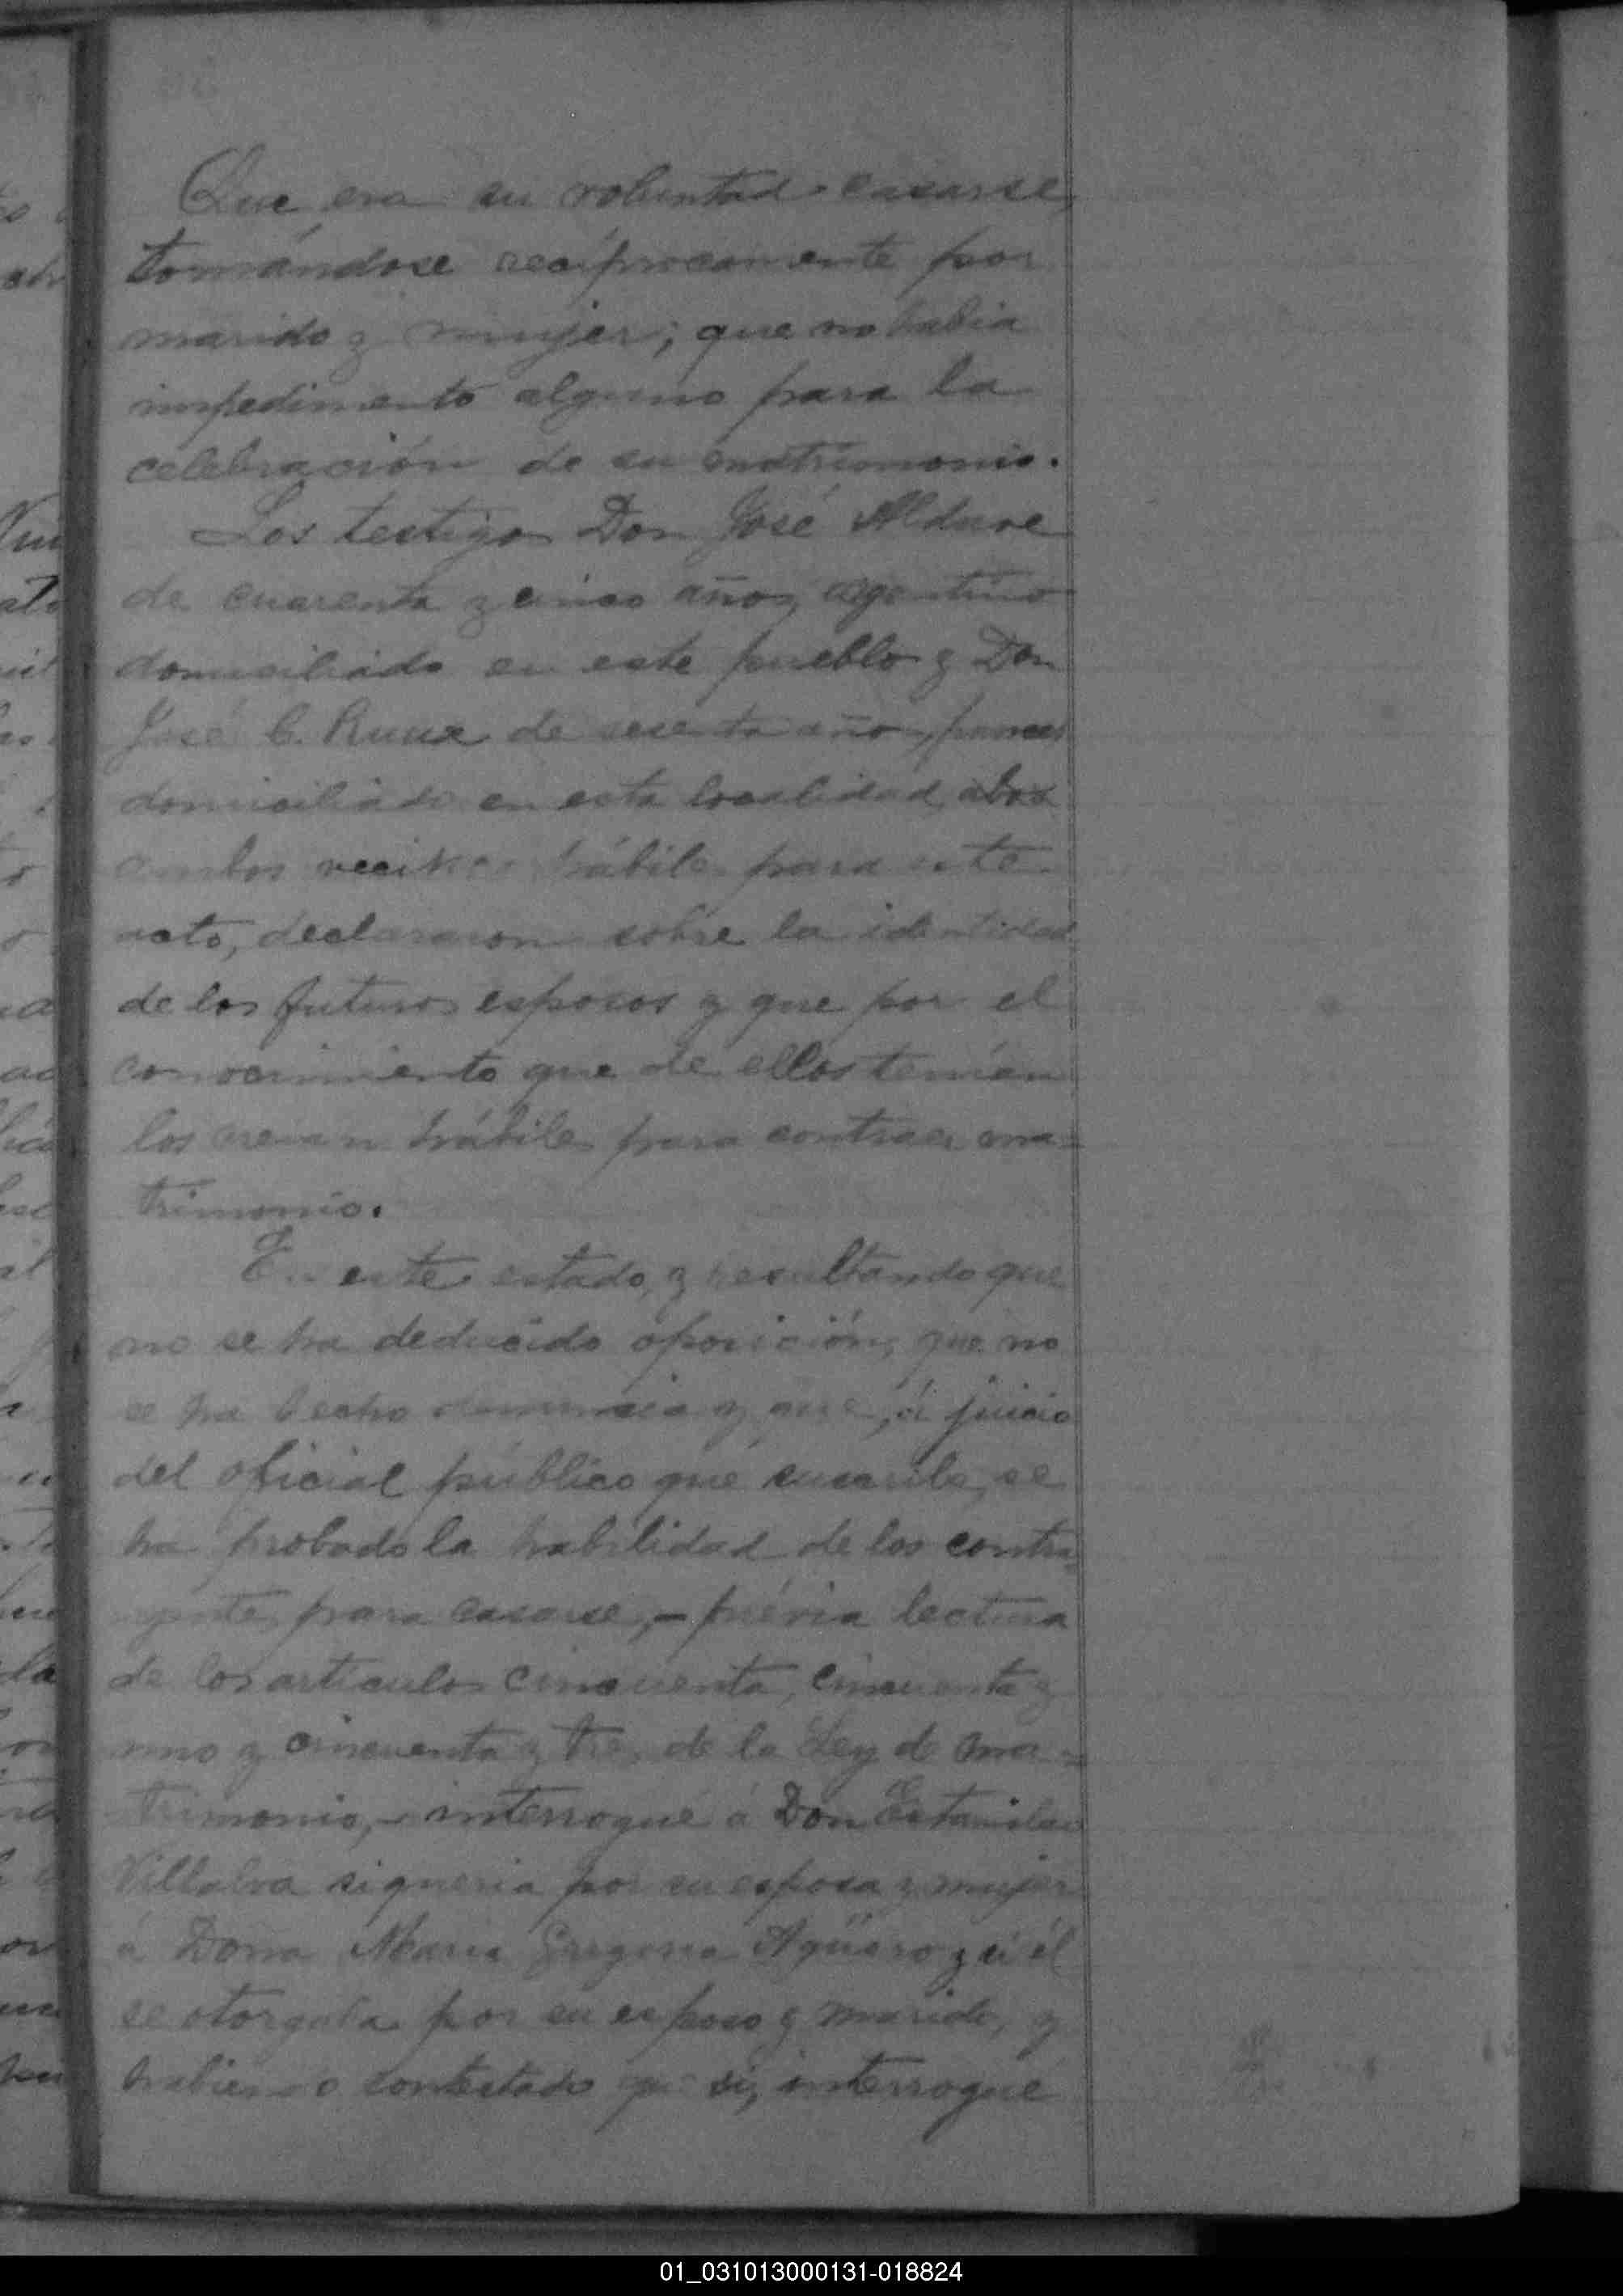 Que era su voluntad casarse,
tomándose recíprocamente por
marido y mujer; que no habia
impedimento alguno para la
celebración de su matrimonio.
Los testigos Don José Aldave
de cuarenta y cinco años, argentino
domiciliado en este pueblo y Don
José C. de sesenta años,
domiciliado en esta localidad,
ambos hábiles para este
acto, declararon sobre la identidad
de los futuros esposos y que por el
conocimiento que de ellos tenían
los creian hábiles para contraer ma-
trimonio.
En este estado, y resultando que
no se ha deducido oposición, que no
se ha hecho denuncia y que, á juicio
del oficial público que suscribe, se
ha probado la habilidad de los contra
yentes para casarse,- prévia lectura
de los artículos cincuenta, cincuenta y
uno y cincuenta y tres de la Ley de ma-
trimonio,- interrogué á Don Estanislao
Villalva si queria por su esposa y mujer
á Dona Maria Gregoria Agüero y si él
se otorgaba por su esposo y marido, y
habiendo contestado que si, interrogué
01_031013000131-018824